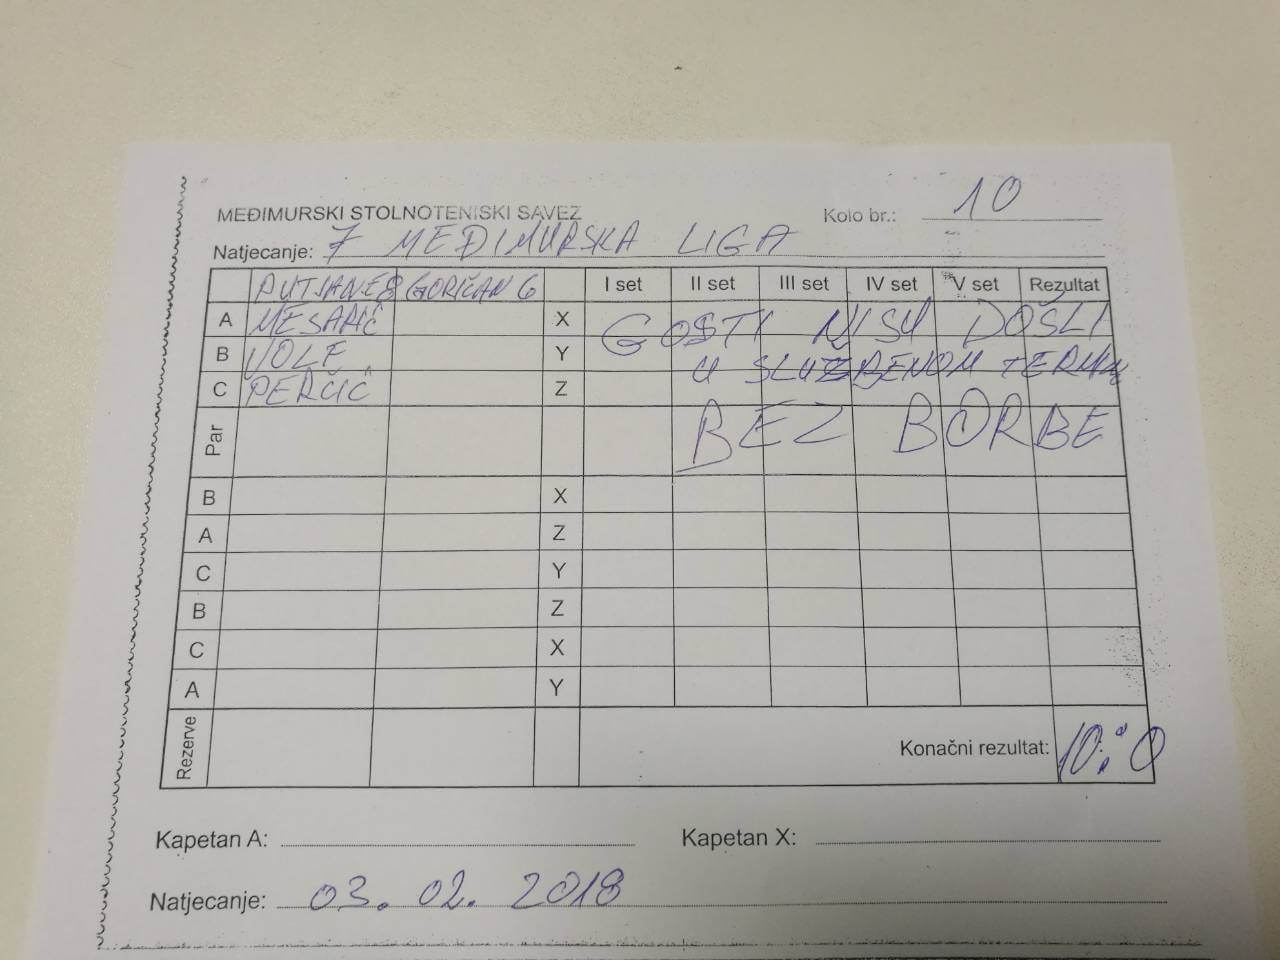 MEĐIMURSKI STOLNOTENISKI SAVEZ
Kolo br.: 10
Natjecanje: 7 MEĐIMURSKA LIGA
PUTJANE 8 GORIČAN 6 I set II set III set IV set V set Rezultat
A MESARIĆ X GOSTI NISU DOŠLI
B VOLE Y U SLUŽBENOM TERMINU
C PERČIĆ Z
Par BEZ BORBE
B X
A Z
C Y
B Z
C X
A Y
Rezerve Konačni rezultat: 10:0
Kapetan A: Kapetan X:
Natjecanje: 03. 02. 2018